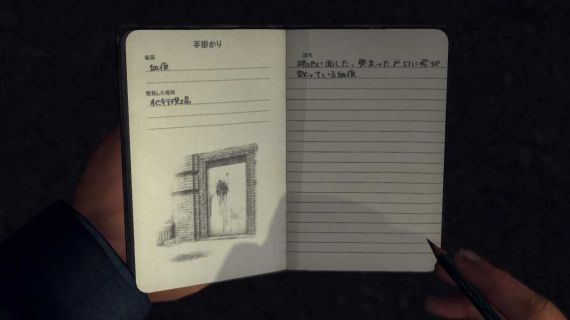 手掛かり
種類
血痕
発見した場所
犯行現場
説明
路地に面した、奥まった戸口に飛び
散っている血痕